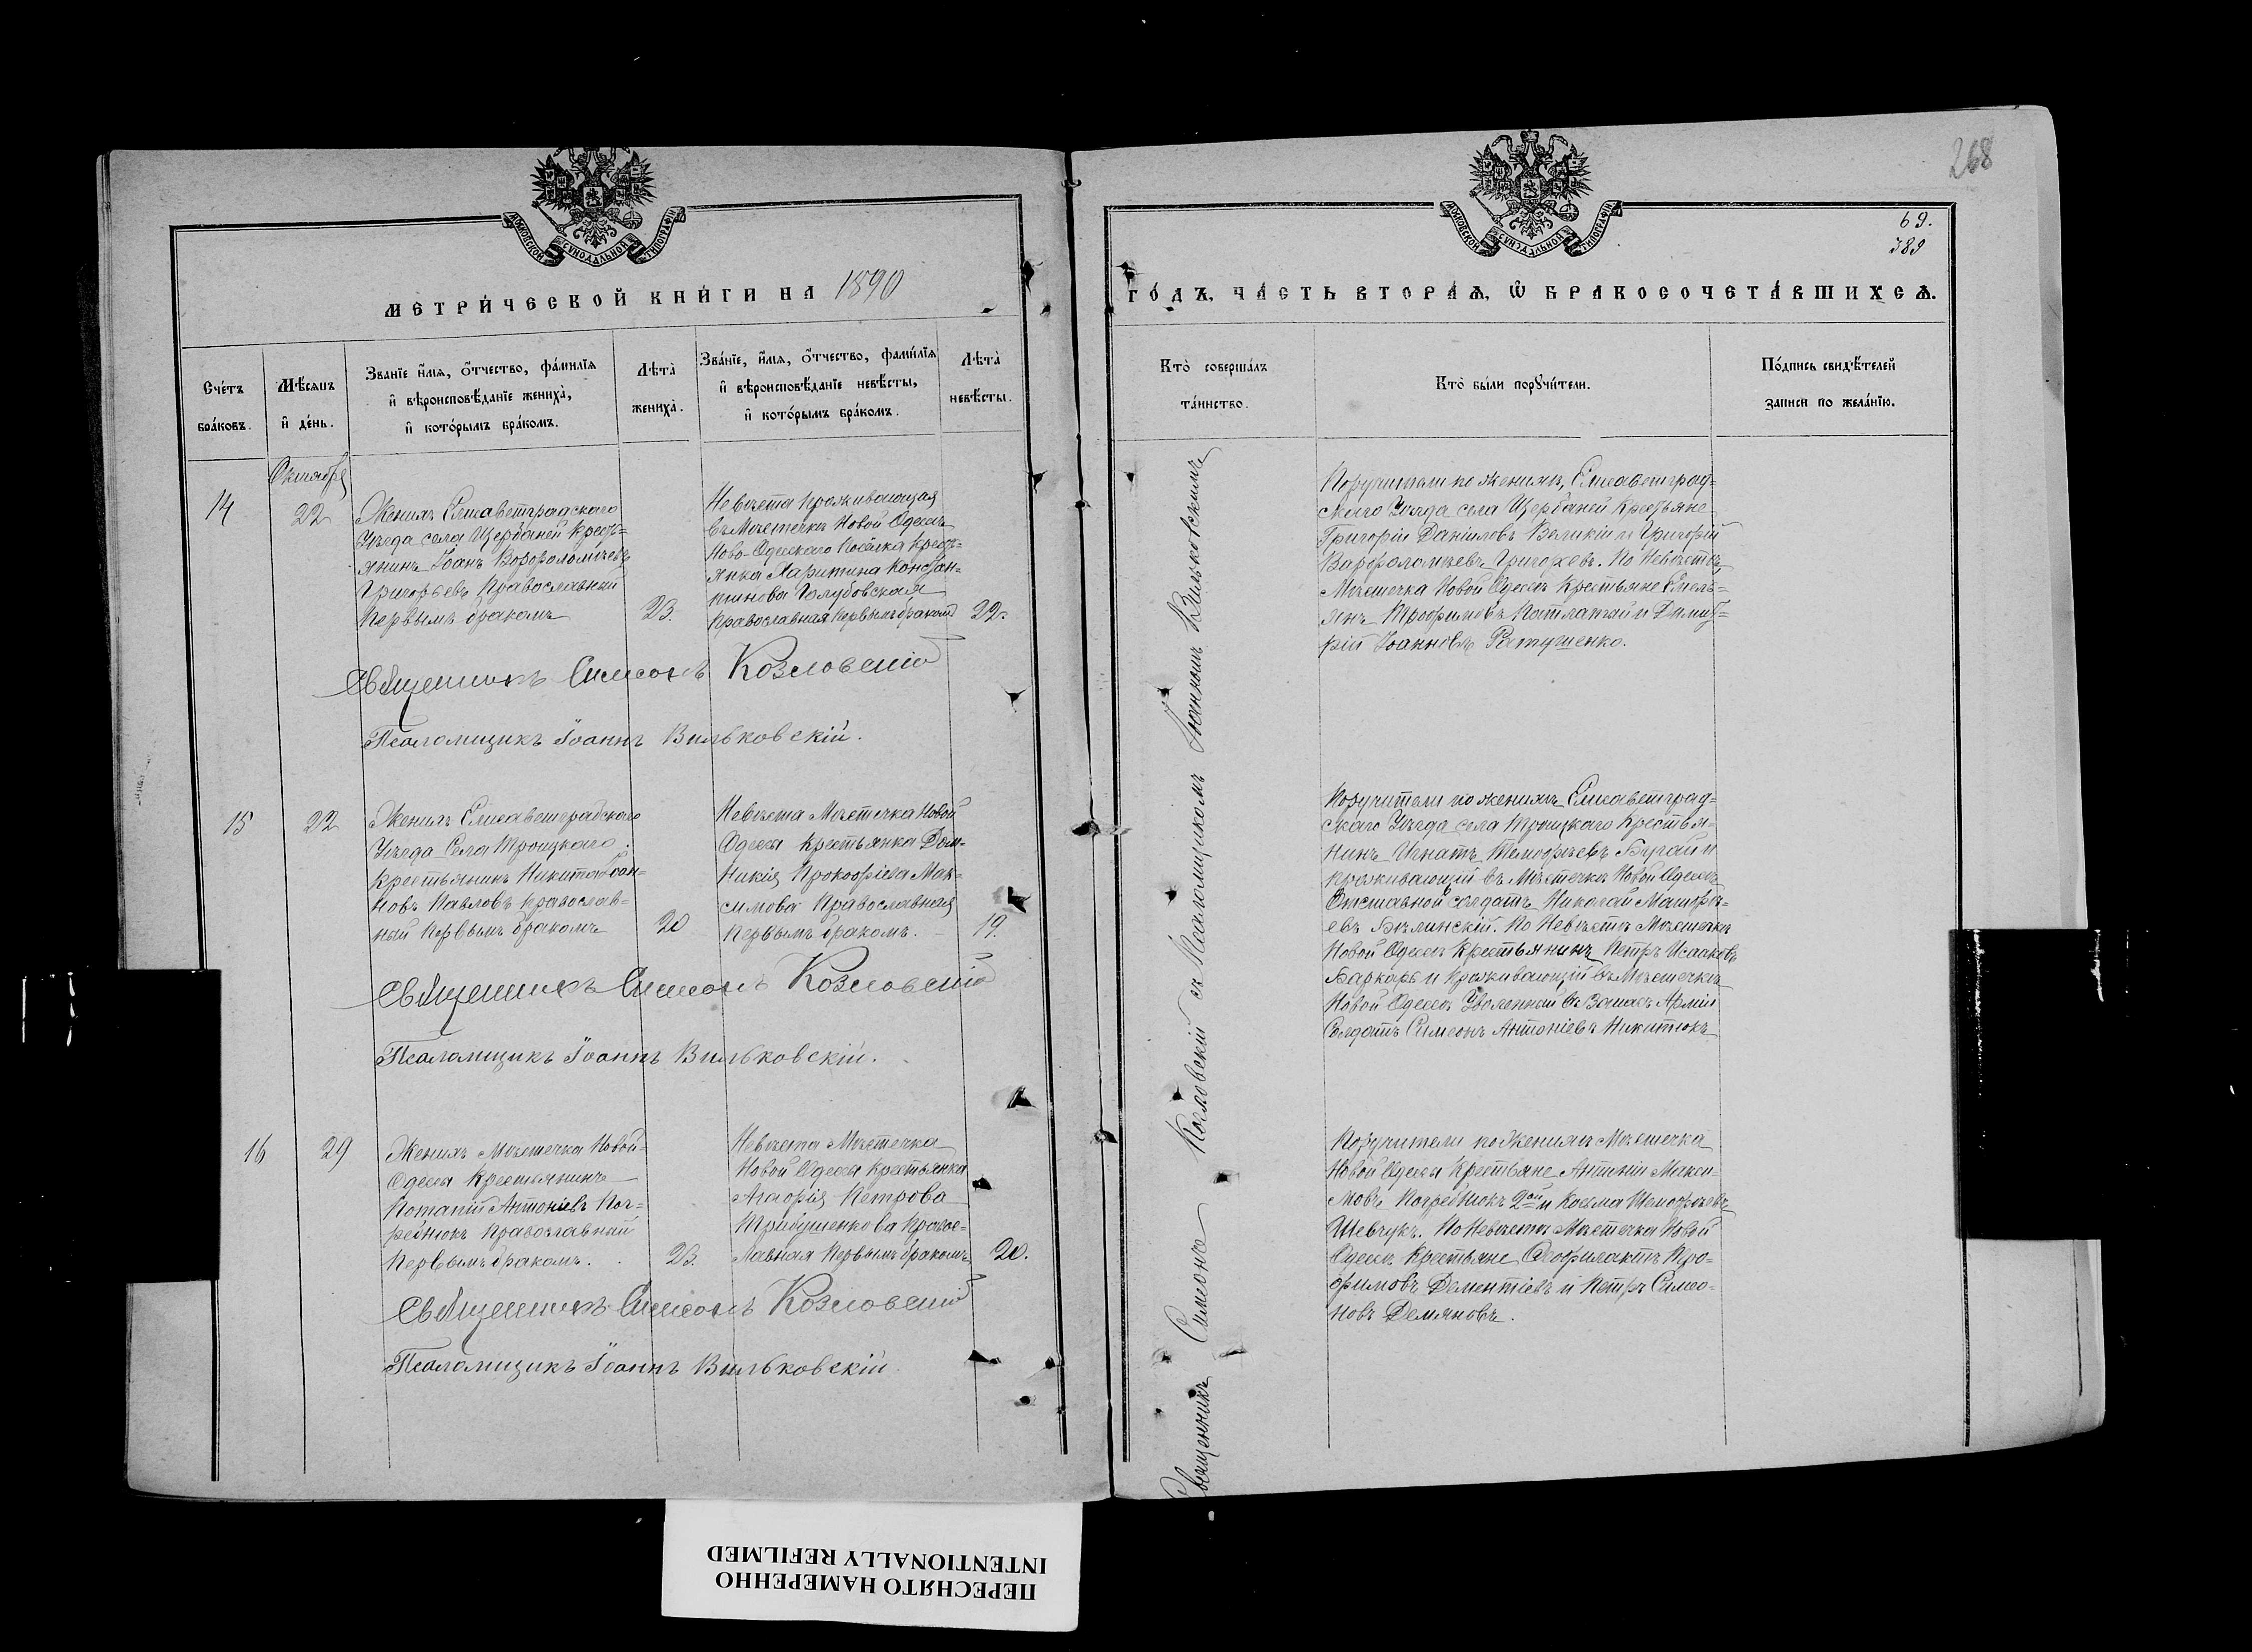 МОСКОВСКОЙ СѴНОДАЛЬНОЙ ТИПОГРАФІИ
МЕТРИ́ЧЕСКОЙ КНИ́ГИ НА 1890
Сче́тъ бра́ковъ.
Мѣ́сяцъ и҆ де́нь.
Зва́нїе и҆́мѧ, ѻ҆́тчество, фамѵ́лїѧ
и҆ вѣроисповѣ́данїе женихà,
и҆ кото́рымъ бра́комъ.
Лѣ́та женихà.
Зва́нїе, и҆́мѧ, ѻ҆́тчество, фамѵ́лїѧ
и҆ вѣроисповѣ́данїе невѣ́сты,
и҆ кото́рымъ бра́комъ.
Лѣ́та невѣ́сты.
Октября
14
22
Женихъ Елисаветградскаго
Уѣзда села Щербаней Кресть=
янинъ Іоанъ Ворфоломѣевъ
Григорьевъ Православный
Первымъ бракомъ
23.
Невѣста Проживающая
въ Мѣстечкѣ Новой Одессѣ
Ново-Одесскаго Посёлка Крест=
янка Харитина Констан=
тинова Голубовская
Православная Первымъ бракомъ
22.
Священникъ Симеонъ Козловскій
Псаломщикъ Іоаннъ Вильковскій.
15
22
Женихъ Елисаветградскаго
Уѣзда Села Троицкаго
Крестьянинъ Никита Іоан=
новъ Павловъ Православ=
ный Первымъ бракомъ
20
Невѣста Мѣстечка Новой
Одессы Крестьянка Дом=
никія Прокофіева Мак=
симова Православная
Первымъ бракомъ.
19.
Священникъ Симеонъ Козловскій
Псаломщикъ Іоаннъ Вильковскій.
16
29
Женихъ Мѣстечка Новой=
Одессы Крестьянинъ
Потапій Антоніевъ Пог=
ребнюкъ Православный
Первымъ бракомъ.
23.
Невѣста Мѣстечка
Новой Одессы Крестьянка
Агафія Петрова
Трибушенкова Правос=
лавная Первымъ бракомъ
20.
Священникъ Симеонъ Козловскій
Псаломщикъ Іоаннъ Вильковскій.
268
69.
389
МОСКОВСКОЙ СѴНОДАЛЬНОЙ ТИПОГРАФІИ
ГО́ДЪ, ЧА́СТЬ ВТОРА́Ѧ, Ѽ БРАКОСОЧЕТА́ВШИХСѦ.
Кто̀ соверша́лъ
та́инство.
Кто̀ бы́ли порꙋчи́тели.
По́дпись свидѣ́телей
записи по жела́нїю.
Священникъ Симеонъ Козловскій съ Псаломщикомъ Іоанномъ Вильковскимъ
Поручители по женихѣ, Елисаветград=
скаго Уѣзда села Щербаней Крестьяне
Григорій Даніиловъ Великій и Григорій
Варфоломѣевъ Григорьевъ. По Невѣстѣ
Мѣстечка Новой Одессы Крестьяне Емель=
янъ Трофимовъ Потлатый и Димит=
рій Іоанновъ Ретушенко.
Поручители по женихѣ Елисаветград=
скаго Уѣзда села Троицкаго Крестья=
нинъ Игнатъ Тимофѣевъ Бугай и
проживающій въ Мѣстечкѣ Новой Одессѣ
Отставной солдатъ Николай Матфѣ=
евъ Бѣлинскій. По Невѣстѣ Мѣстечка
Новой Одессы Крестьянинъ Петръ Исааковъ
Баркарь и Проживающій въ Мѣстечкѣ
Новой Одессѣ Уволенный въ Запасъ Арміи
Солдатъ Симеонъ Антоніевъ Никитюкъ
Поручители по Женихѣ Мѣстечка
Новой Одессы Крестьяне Антоній Макси=
мовъ Погребнюкъ 2ой и Косьма Тимофѣевъ
Шевчукъ. По Невѣстѣ Мѣстечка Новой
Одессы Крестьяне Феофилактъ Тро=
фимовъ Дементіевъ и Петръ Симео=
новъ Демяновъ.
ПЕРЕСНЯТО НАМЕРЕННО
INTENTIONALLY REFILMED